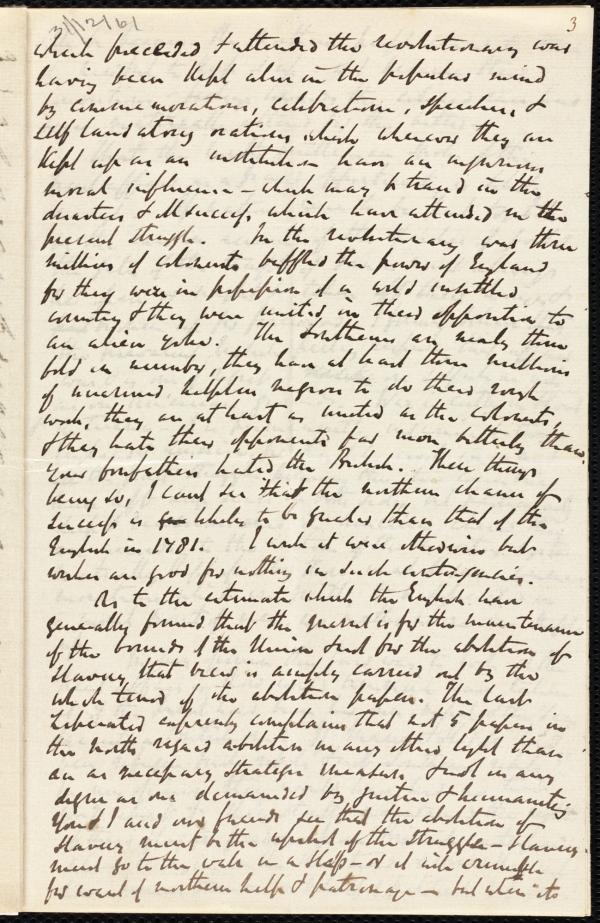 31/12/61
3
which preceded & attended the revolutionary war
having been kept alive in the popular mind
by commemorations, celebrations, speeches, &
self laudatory orations which wherever they are
kept up as an institution have an injurious
moral influence – which may be traced in the
disasters & ill success which have attended in the
present struggle. In the revolutionary war three
millions of colonists baffled the power of England
for they were in possession of a wild unsettled
country & they were united in their opposition to
an alien yoke. The Southerners are nearly three
fold in number, they have at least three millions
of unarmed helpless negroes to do their rough
work, they are at least as united as the colonists,
& they hate their opponents far more bitterly than
your forefathers hated the British. These things
being so, I cant see that the northern chance of
success is likely to be greater than that of the
English in 1781. I wish it were otherwise but
wishes are good for nothing in such contingencies.
As to the estimate which the English have
generally formed that the quarrel is for the maintenance
of the bounds of the Union & not for the abolition of
Slavery, that view is amply carried out by the
whole tenor of the abolition papers. The last
Liberator expressly complains that not 5 papers in
the North regard abolition in any other light than
as a necessary strategic measure, & not in any
degree as one demanded by justice & humanity.
You & I and our friends see that the abolition of
Slavery must be the upshot of the struggle – Slavery
must go to the wall in a slap – or it will crumble
for want of northern help & patronage – but when its